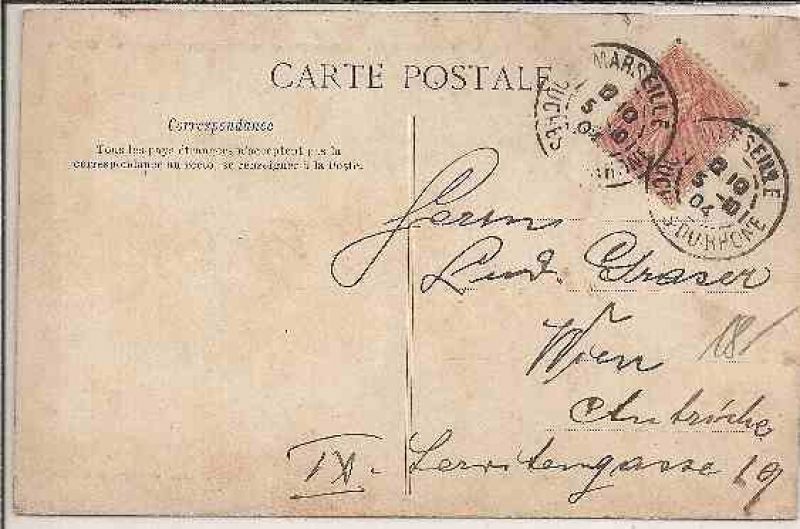 CARTE POSTALE
Correspondance
Tous les pays étrangers, n'acceptent pas la
correspondance au recto, se renseigner à la Poste.
MARSEILLE
10
5 -10
04
BOUCHES
MARSEILLE
10
5 -10
04
BOUCHES-DU-RHONE
Herrn
Lud. Graser
Wien
18/
Autriche
IX. Servitengasse 19